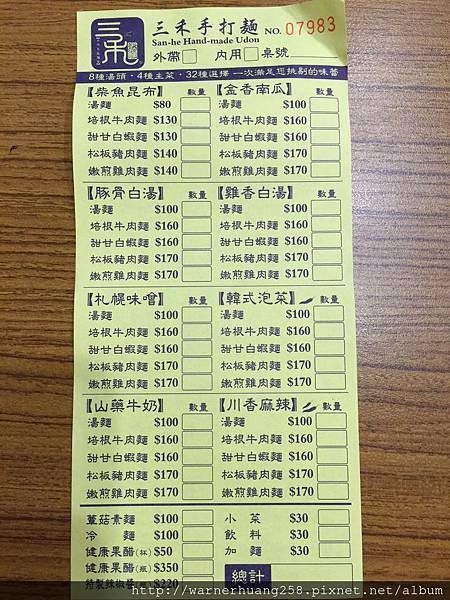 三禾
三禾手打麵 NO. 07983
San-he Hand-made Udon
外帶 內用 桌號
8種湯頭，4種主菜，32種選擇 一次滿足您挑剔的味蕾
【柴魚昆布】 數量 【金香南瓜】 數量
湯麵 $80 湯麵 $100
培根牛肉麵 $130 培根牛肉麵 $160
甜甘白蝦麵 $130 甜甘白蝦麵 $160
松板豬肉麵 $140 松板豬肉麵 $170
嫩煎雞肉麵 $140 嫩煎雞肉麵 $170
【豚骨白湯】 數量 【雞香白湯】 數量
湯麵 $100 湯麵 $100
培根牛肉麵 $160 培根牛肉麵 $160
甜甘白蝦麵 $160 甜甘白蝦麵 $160
松板豬肉麵 $170 松板豬肉麵 $170
嫩煎雞肉麵 $170 嫩煎雞肉麵 $170
【札幌味噌】 數量 【韓式泡菜】 數量
湯麵 $100 湯麵 $100
培根牛肉麵 $160 培根牛肉麵 $160
甜甘白蝦麵 $160 甜甘白蝦麵 $160
松板豬肉麵 $170 松板豬肉麵 $170
嫩煎雞肉麵 $170 嫩煎雞肉麵 $170
【山藥牛奶】 數量 【川香麻辣】 數量
湯麵 $100 湯麵 $100
培根牛肉麵 $160 培根牛肉麵 $160
甜甘白蝦麵 $160 甜甘白蝦麵 $160
松板豬肉麵 $170 松板豬肉麵 $170
嫩煎雞肉麵 $170 嫩煎雞肉麵 $170
蕈菇素麵 $100 小菜 $30
冷麵 $100 飲料 $30
健康果醋(杯) $50 加麵 $30
健康果醋(瓶) $350
特製辣椒醬(瓶) $220 總計
http://warnerhuang258.pixnet.net/album